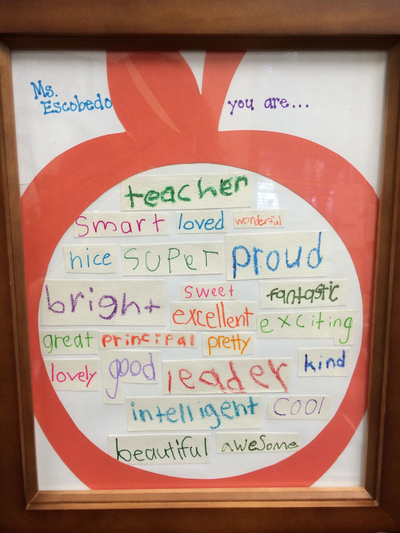 Ms.
Escobedo
you are...
teacher
smart loved wonderful
nice super proud
bright sweet fantastic
excellent exciting
great principal pretty
lovely good leader kind
intelligent cool
beautiful awesome